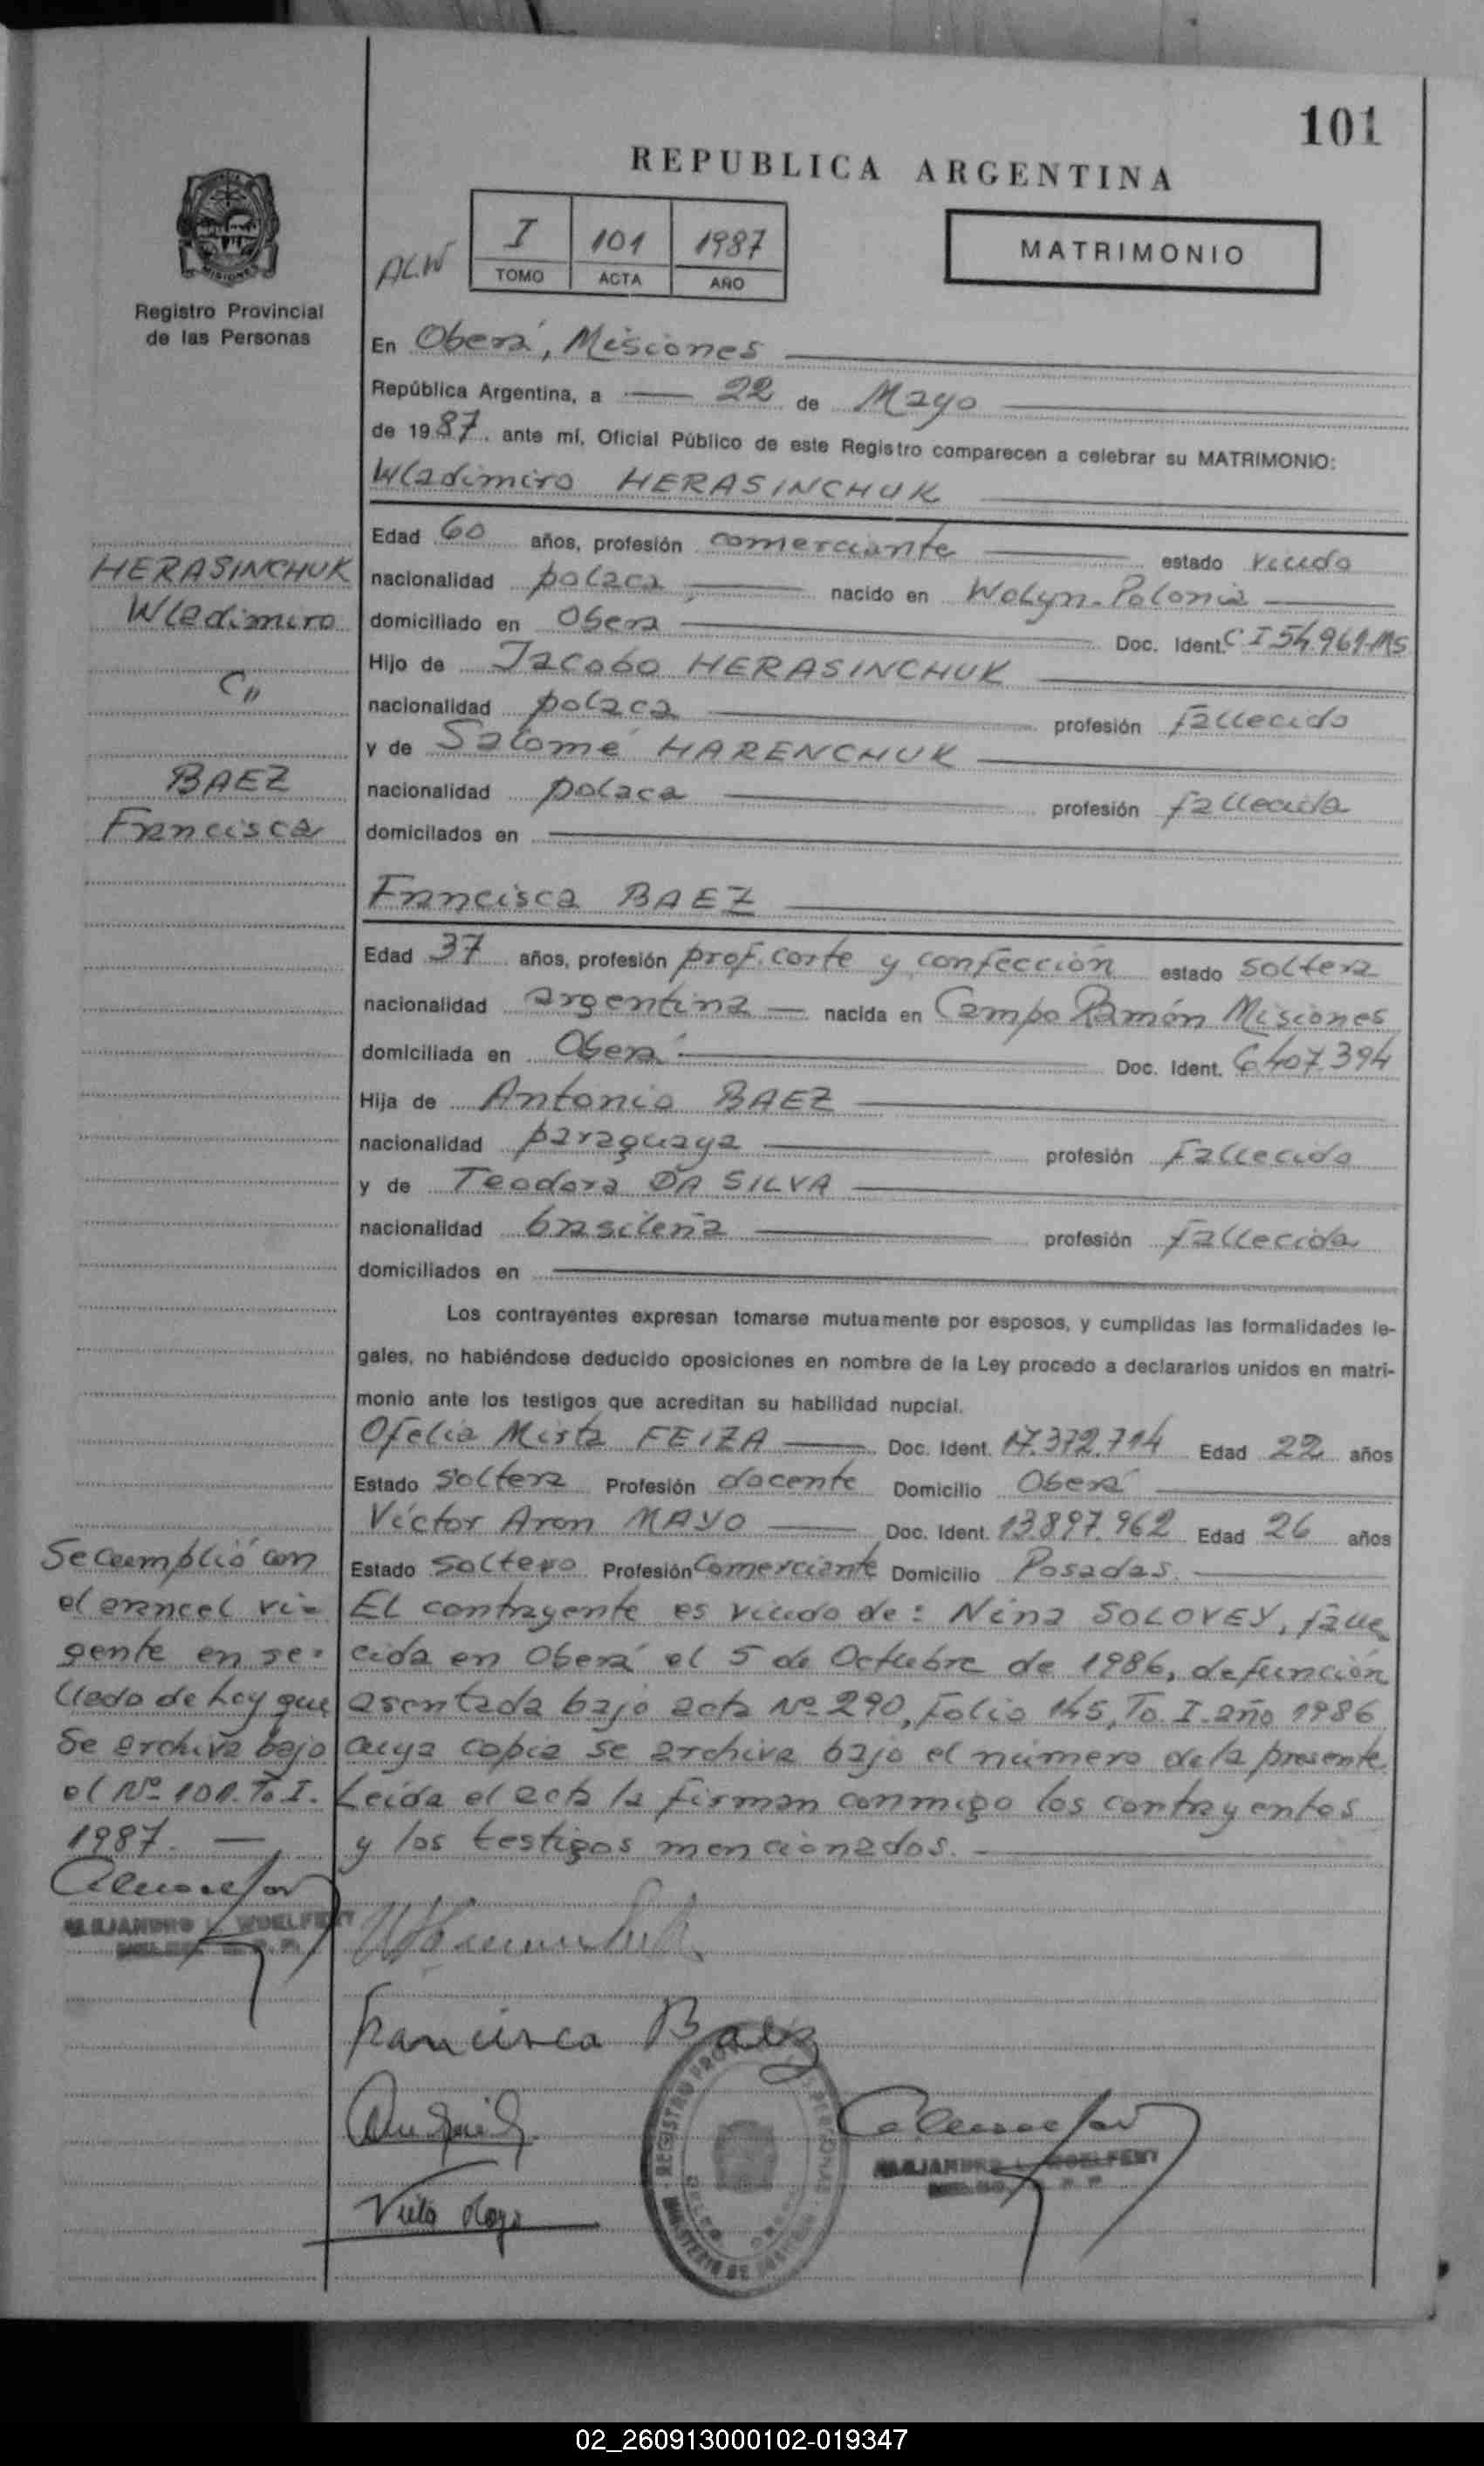 101
REPUBLICA ARGENTINA
ALW
I 101 1987
TOMO ACTA AÑO
MATRIMONIO
MISIONES
Registro Provincial
de las Personas
En Oberá, Misiones
República Argentina, a 22 de Mayo
de 1987, ante mí, Oficial Público de este Registro comparecen a celebrar su MATRIMONIO:
Wladimiro HERASINCHUK
Edad 60 años, profesión comerciante estado viudo
nacionalidad polaca nacido en Wolyn-Polonia
domiciliado en Oberá Doc. Ident. C I 54.961-MS
Hijo de Jacobo HERASINCHUK
nacionalidad polaca profesión fallecido
y de Salomé HARENCHUK
nacionalidad polaca profesión fallecida
domicilados en
HERASINCHUK
Wladimiro
C"
BAEZ
Francisca
Francisca BAEZ
Edad 37 años, profesión prof. corte y confección estado soltera
nacionalidad argentina nacida en Campo Ramón Misiones
domiciliada en Oberá Doc. Ident. 6.407.394
Hija de Antonio BAEZ
nacionalidad paraguaya profesión fallecido
y de Teodora DA SILVA
nacionalidad brasileña profesión fallecida
domiciliados en
Los contrayentes expresan tomarse mutuamente por esposos, y cumplidas las formalidades le-
gales, no habiéndose deducido oposiciones en nombre de la Ley procedo a declararlos unidos en matri-
monio ante los testigos que acreditan su habilidad nupcial.
Ofelia Mirta FEIZA Doc. Ident. 17.372.714 Edad 22 años
Estado soltera Profesión docente Domicilio Oberá
Víctor Aron MAYO Doc. Ident. 13.897.962 Edad 26 años
Estado soltero Profesión Comerciante Domicilio Posadas
El contrayente es viudo de: Nina SOLOVEY, falle
cida en Oberá el 5 de Octubre de 1986, defunción
asentada bajo acta Nº 290, Folio 145, To. I. año 1986
cuya copia se archiva bajo el número de la presente.
Leída el acta la firman conmigo los contrayentes
y los testigos mencionados.
Se cumplió con
el arancel vi-
gente en se-
llado de hoy que
se archiva bajo
el Nº 101. To I.
1987.
ALEJANDRO L. WOELFERT
Francisca Baez
REGISTRO
MINISTERIO DE
ALEJANDRO L. WOELFERT
02_260913000102-019347